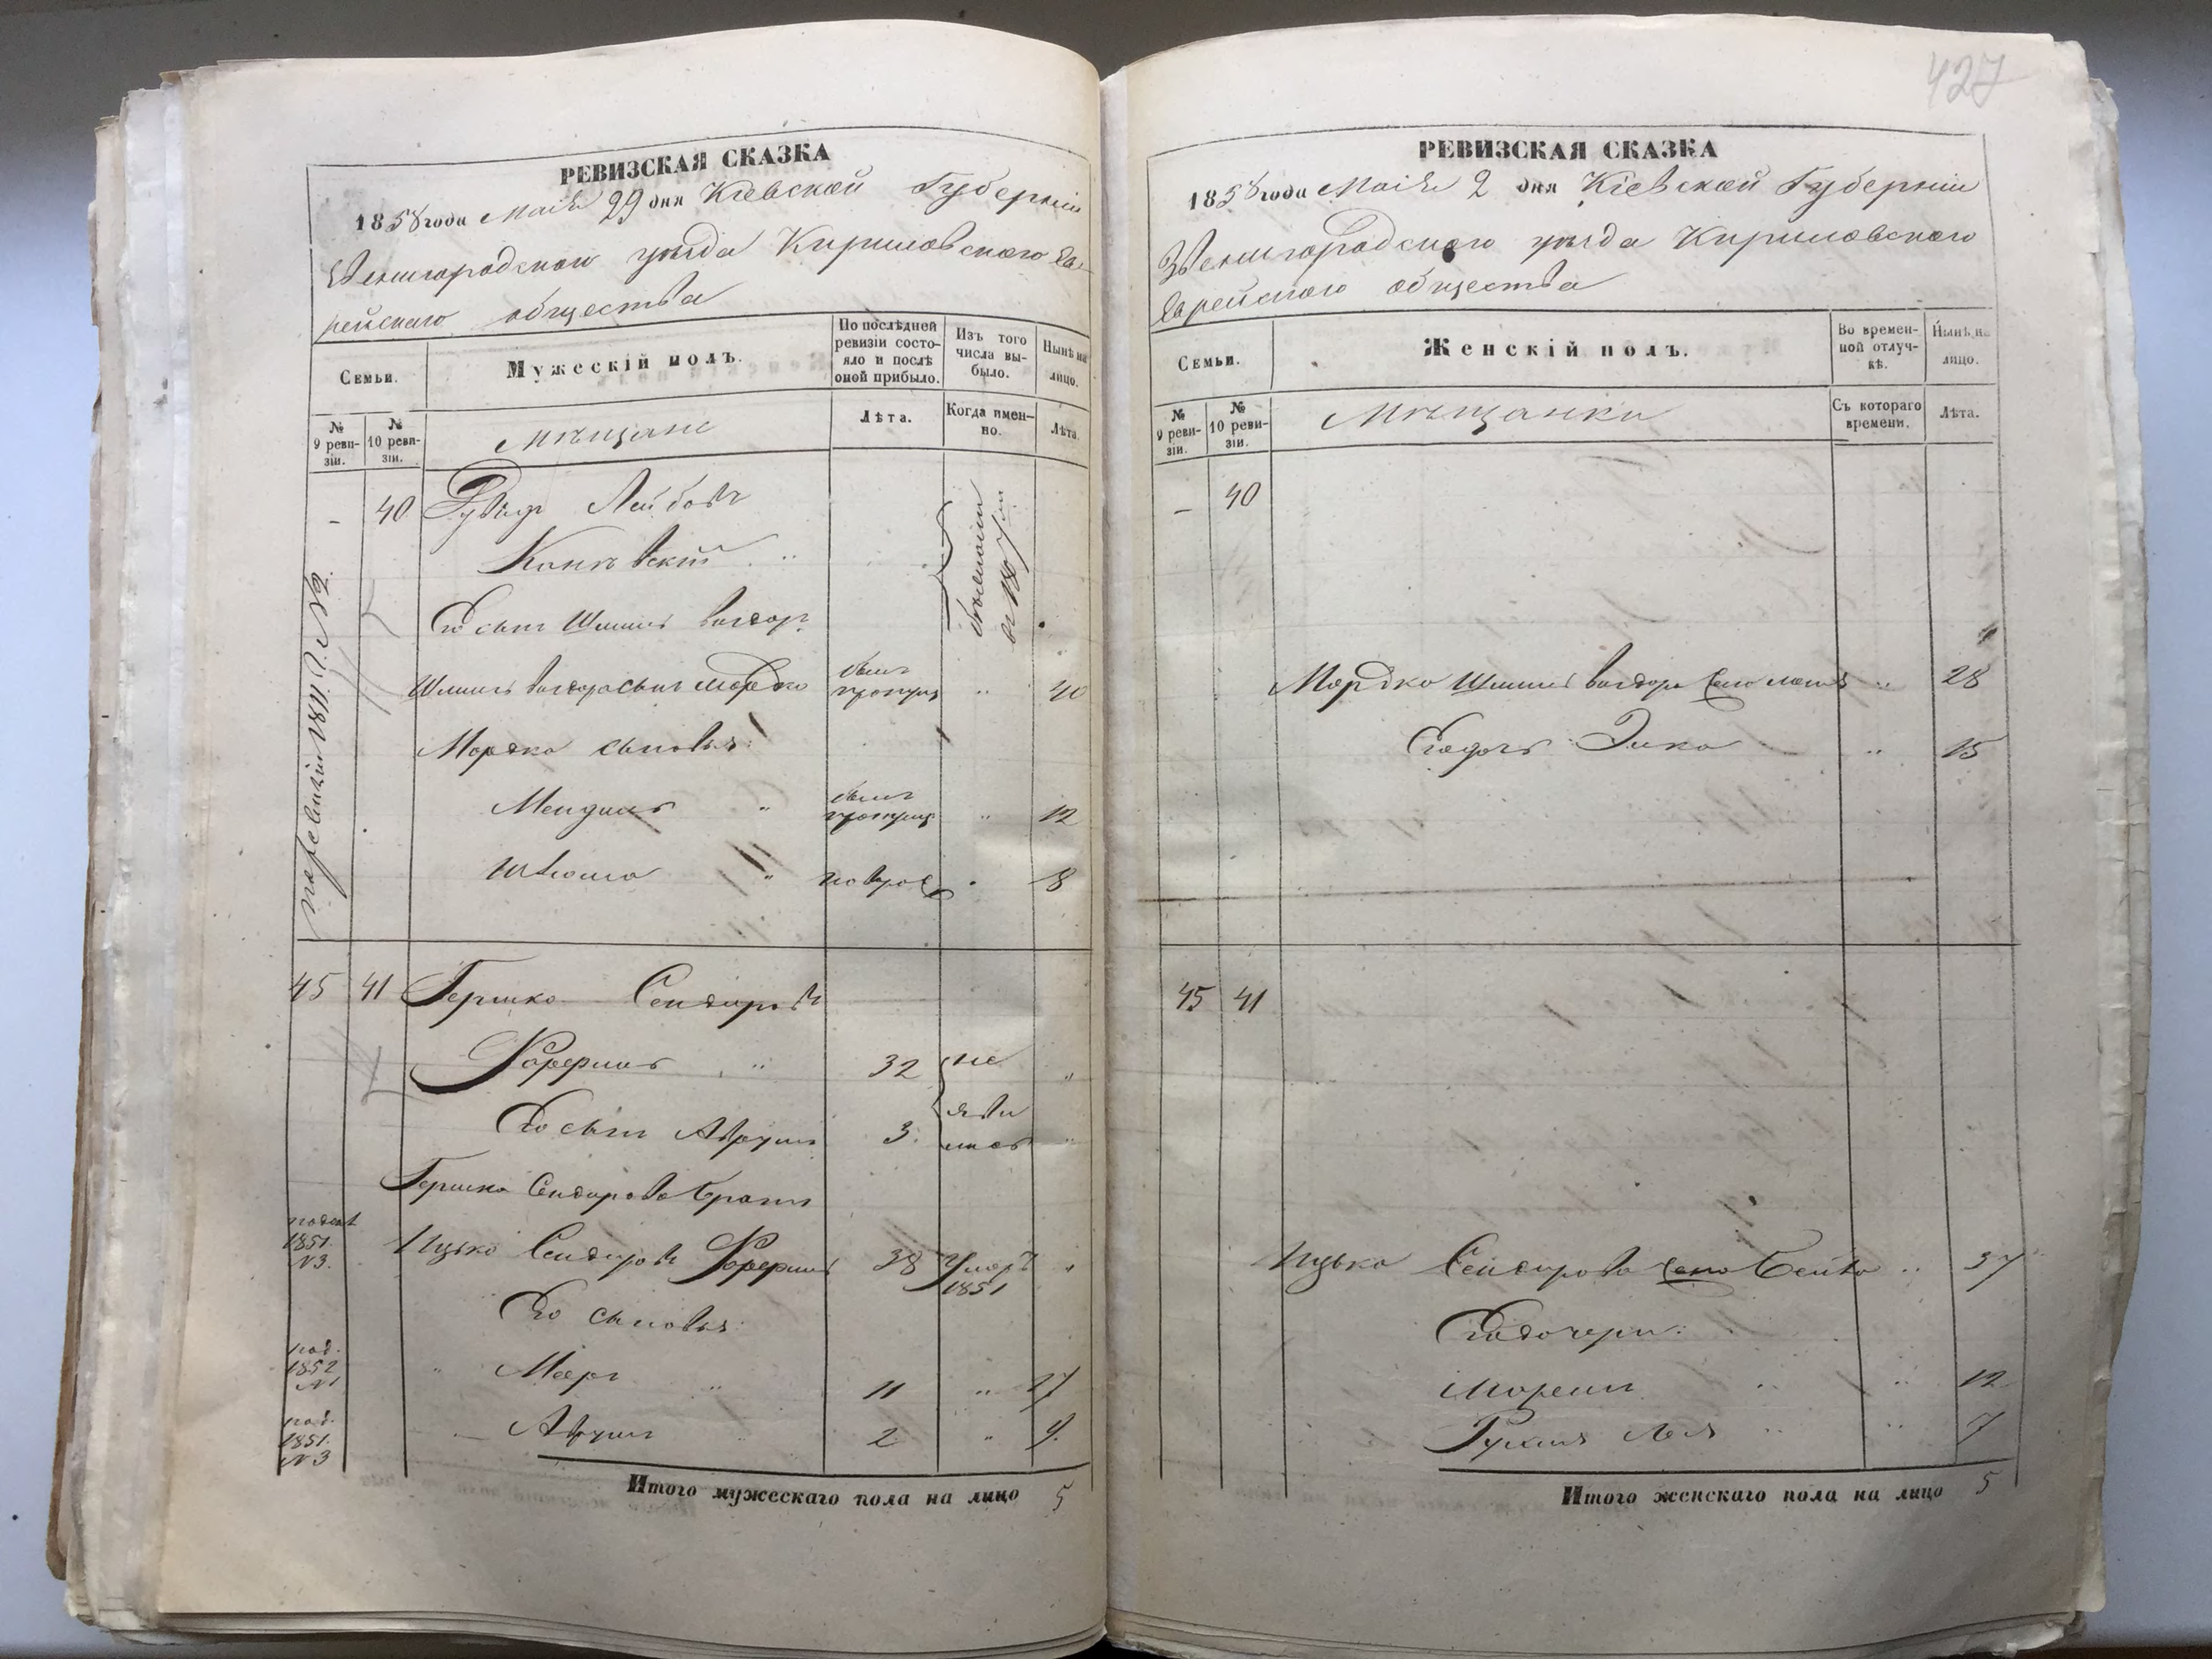 427
РЕВИЗСКАЯ СКАЗКА
1858 года Маія 29 дня Кіевской Губерніи
Звенигородскаго уѣзда Кириловскаго Ев-
рейскаго общества
Семьи.
Мужескій полъ.
По послѣдней ревизіи состо-яло и послѣ оной прибыло.
Изъ того числа вы-было.
Нынѣ на лицо.
№ 9 реви-зіи.
№ 10 реви-зіи.
Мѣщане
Лѣта.
Когда имен-но.
Лѣта.
- 40 Рувинъ Лейбовъ
Каневскій
Его сынъ Шлиома
Мордко 40
Мордка сыновья:
Мендель 12
8
45 41 Гершко Сендеровъ
32 не
Его сынъ Аврумъ 3 яви
лись
Гершка Сендерова братъ
1851 №3. Ицько Сендеровъ 38 умеръ 1851
Его сыновья:
под. 1852 №1 Мееръ 11 17
под. 1851. №3 Аврумъ 2 9.
Итого мужескаго пола на лицо 5
РЕВИЗСКАЯ СКАЗКА
1858 года Маія 2 дня Кіевской Губерніи
Звенигородскаго уѣзда Кириловскаго
Еврейскаго общества
Семьи.
Женскій полъ.
Во времен-ной отлуч-кѣ.
Нынѣ на лицо.
№ 9 реви-зіи.
№ 10 реви-зіи.
Мѣщанки
Съ котораго времени.
Лѣта.
- 40
Мордко 28
Его дочь 15
45 41
Ицька Сендерова жена Бейла 37
Его дочери:
12
Рухля Лея 7
Итого женскаго пола на лицо 5